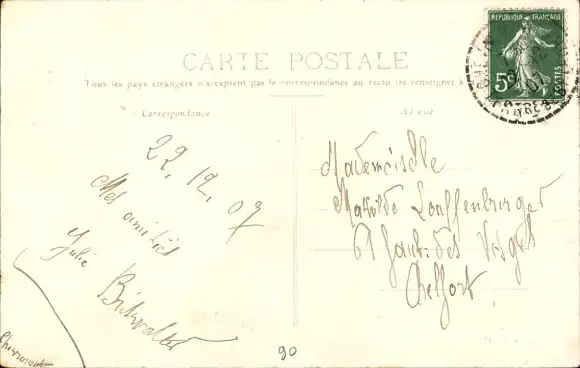 CARTE POSTALE
Tous les pays étrangers n'acceptent pas la correspondance au recto (se renseigner à
Correspondance
Adresse
REPUBLIQUE FRANÇAISE
5c
POSTES
22.12.07
Mes amitiés
Julie
Mademoiselle
Mathilde
61 Faub. des Vosges
Belfort
90